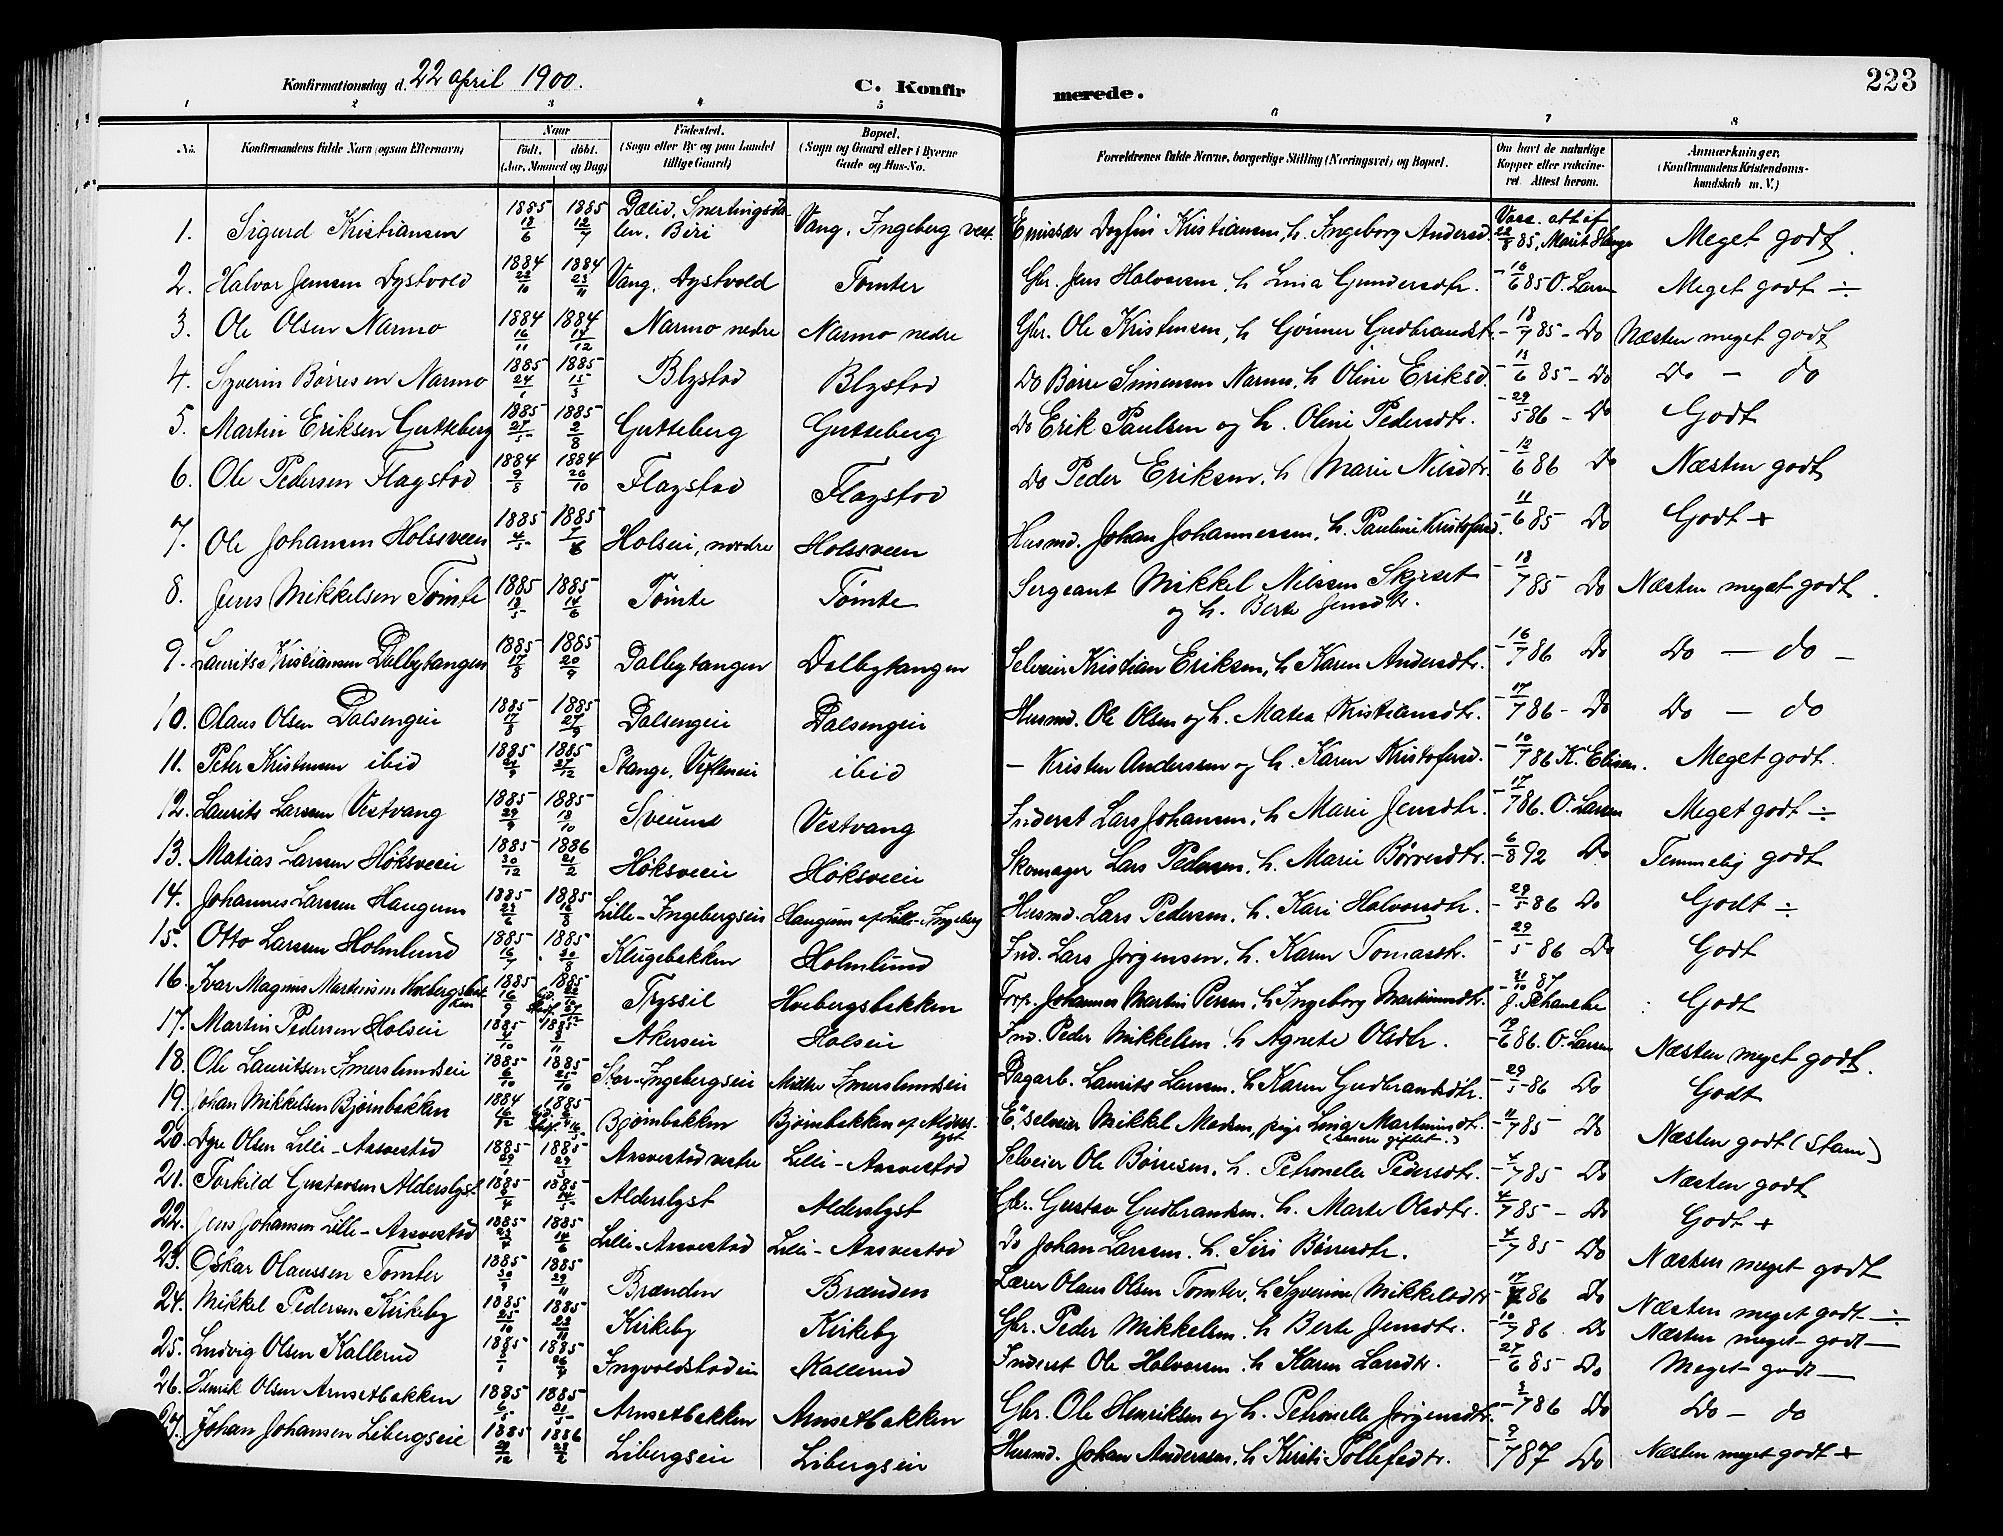 Konfirmationsdag d. 22 april 1900. C. Konfirmerede. 223
1 2 3 4 5 6 7 8
No. Konfirmandens fulde Navn (ogsaa Efternavn) Naar født. døbt. (Aar, Maaned og Dag) Fødested. (Sogn eller By og paa Landet tillige Gaard) Bopæl. (Sogn og Gaard eller i Byerne Gade og Hus-No. Forældrenes fulde Navne, borgerlige Stilling (Næringsvei) og Bopæl. Om havt de naturlige Kopper eller vakcineret. Attest herom. Anmærkninger. (Konfirmandens Kristendomskundskab m. V.)
1. Sigurd Kristiansen 1885 13/6 1885 12/7 Dælid, Snertingsdalen, Biri Vang, Ingeberg vest. Emissær Dagfin Kristiansen, h. Ingeborg Andersd. Vacc. att. af 22/8 85, Marit Hauge Meget godt.
2. Halvor Jensen Dystvold 1884 22/10 1884 23/11 Vang, Dystvold Tomter Gbr. Jens Halvorsen, h. Lina Gundersdtr. - 16/6 85 O. Larsen Meget godt ÷
3. Ole Olsen Narmo 1884 16/11 1884 14/12 Narmo nedre Narmo nedre Gbr. Ole Kristensen, h. Gunner Gudbrandsdtr. - 18/7 85 - Do Næsten meget godt
4. Syverin Børresen Narmo 1885 24/1 1885 15/3 Blystad Blystad Do Børre Simensen Narmo, h. Oline Eriksd. - 13/6 85 - Do Do - do
5. Martin Eriksen Gutteberg 1885 27/5 1885 2/8 Gutteberg Gutteberg Do Erik Paulsen og h. Oline Pedersdtr. - 29/5 86 - Do Godt
6. Ole Pedersen Flagstad 1884 9/8 1884 20/10 Flagstad Flagstad Do Peder Eriksen, h. Marie Nilsdtr. - 12/6 86 Do Næsten godt
7. Ole Johansen Holssveen 1885 4/5 1885 Holsei, nordre Holssveen Husmd. Johan Johannessen, h. Pauline Kristofersd. - 11/6 85 Do Godt +
8. Jens Mikkelsen Tømte 1885 13/5 1885 14/6 Tømte Tømte Sergeant Mikkel Nilssen Skjeset og h. Berte Jensdtr. - 18/7 85 Do Næsten meget godt.
9. Laurits Kristiansen Dalbytangen 1885 17/8 1885 20/9 Dalbytangen Dalbytangen Selveier Kristian Eriksen, h. Karen Andersdtr. - 16/7 86 Do Do - do -
10. Olaus Olsen Dalsengeie 1885 17/8 1885 27/9 Dalsengeie Dalsengeie Husmd. Ole Olsen og h. Matea Kristiansdtr. - 17/7 86 - Do Do - do
11. Peter Kristensen ibid 1885 1885 27/12 Stange, ibid - Kristen Anderssen og h. Karen Kristofersd. - 10/7 86 K. Meget godt.
12. Laurits Larssen Vestvang 1885 29/9 1885 18/10 Sveund Vestvang Inderst Lars Johansen, h. Marie Jensdtr. - 17/7 86. O. Larsen Meget godt ÷
13. Matias Larssen Høksveeie 1885 30/12 1886 21/2 Høksveeie Høksveeie Skomager Lars Pedersen, h. Marie Børresdtr. - 6/8 92 Do Temmelig godt
14. Johannes Larssen Haugum 1885 29/6 1885 16/8 Lille-Ingebergseie Haugum af Lille-Ingeberg Husmd. Lars Pedersen, h. Kari Halvorsdtr. - 29/5 86 Do Godt ÷
15. Otto Larssen Holmlund 1885 16/7 1885 30/8 Klugebakken Holmlund Ind. Lars Jørgensen, h. Karen Tomasdtr. - 29/5 86 Do Godt
16. Ivar Magnus Martinsen Hoebergsbakken 1885 16/9 1885 Trysil Hoebergsbakken Torp. Johannes Martin Persen, h. Ingeborg Martinusdtr. - 31/10 87 Godt
17. Martin Pedersen Holseie 1885 4/10 1885 8/11 Akerseie Holseie Ind. Peder Mikkelsen, h. Agnete Olsdtr. - 19/6 86. O. Larsen Næsten meget godt.
18. Ole Lauritsen Imerslundseie 1885 6/10 1885 25/10 Stor-Ingebergseie Midtre Imerslundseie Dagarb. Laurits Larssen, h. Karen Gudbrandsdtr. - 29/5 86 Do Godt
19. Johan Mikkelsen Bjørnbakken 1884 16/12 1885 Bjørnbakken Bjørnbakken af Alderslyst E., selveier Mikkel Madsen, pige Lina Martinusdt. (senere giftet.) - 11/7 85 - Do Næsten godt (stam)
20. Dyre Olsen Lille-Arnestad 1885 29/1 1885 29/3 Arnestad vestre Lille-Arnestad Selveier Ole Børresen, h. Petronelle Pedersdtr. - 4/7 85 - Do Næsten godt
21. Torkild Gustavsen Alderslyst 1885 8/4 1885 14/5 Alderslyst Alderslyst Gbr. Gustav Gudbrandsen, h. Marte Olsdtr. - 4/7 85 - Do Godt +
22. Jens Johansen Lille-Arnestad 1885 23/4 1885 14/6 Lille-Arnestad Lille-Arnestad Do Johan Larssen, h. Siri Børresdtr. - 4/7 85 Do Næsten meget godt
23. Oskar Olaussen Tomter 1885 30/9 1885 29/11 Brænden Brænden Lærer Olaus Olsen Tomter, h. Syverine Mikkelsdtr. - 17/7 86 Do Næsten meget godt ÷
24. Mikkel Pedersen Kirkeby 1885 25/10 1885 22/11 Kirkeby Kirkeby Gbr. Peder Mikkelsen, h. Berte Jensdtr. - 10/7 86 Do Næsten meget godt -
25. Ludvig Olsen Kallerud 1885 8/1 1885 26/4 Ingvoldstadeie Kallerud Inderst Ole Halvorsen, h. Karen Larsdtr. - 27/6 85 Do Meget godt -
26. Henrik Olsen Arnsetbakken 1885 6/5 1885 31/5 Arnsetbakken Arnsetbakken Gbr. Ole Henriksen og h. Petronelle Jørgensdtr. - 3/7 86 Do Do - do
27. Johan Johansen Libergseie 1885 29/12 1886 28/2 Libergseie Libergseie Husmd. Johan Anderssen, h. Kirsti Tollefsdtr. - 9/7 87 Do Næsten meget godt +